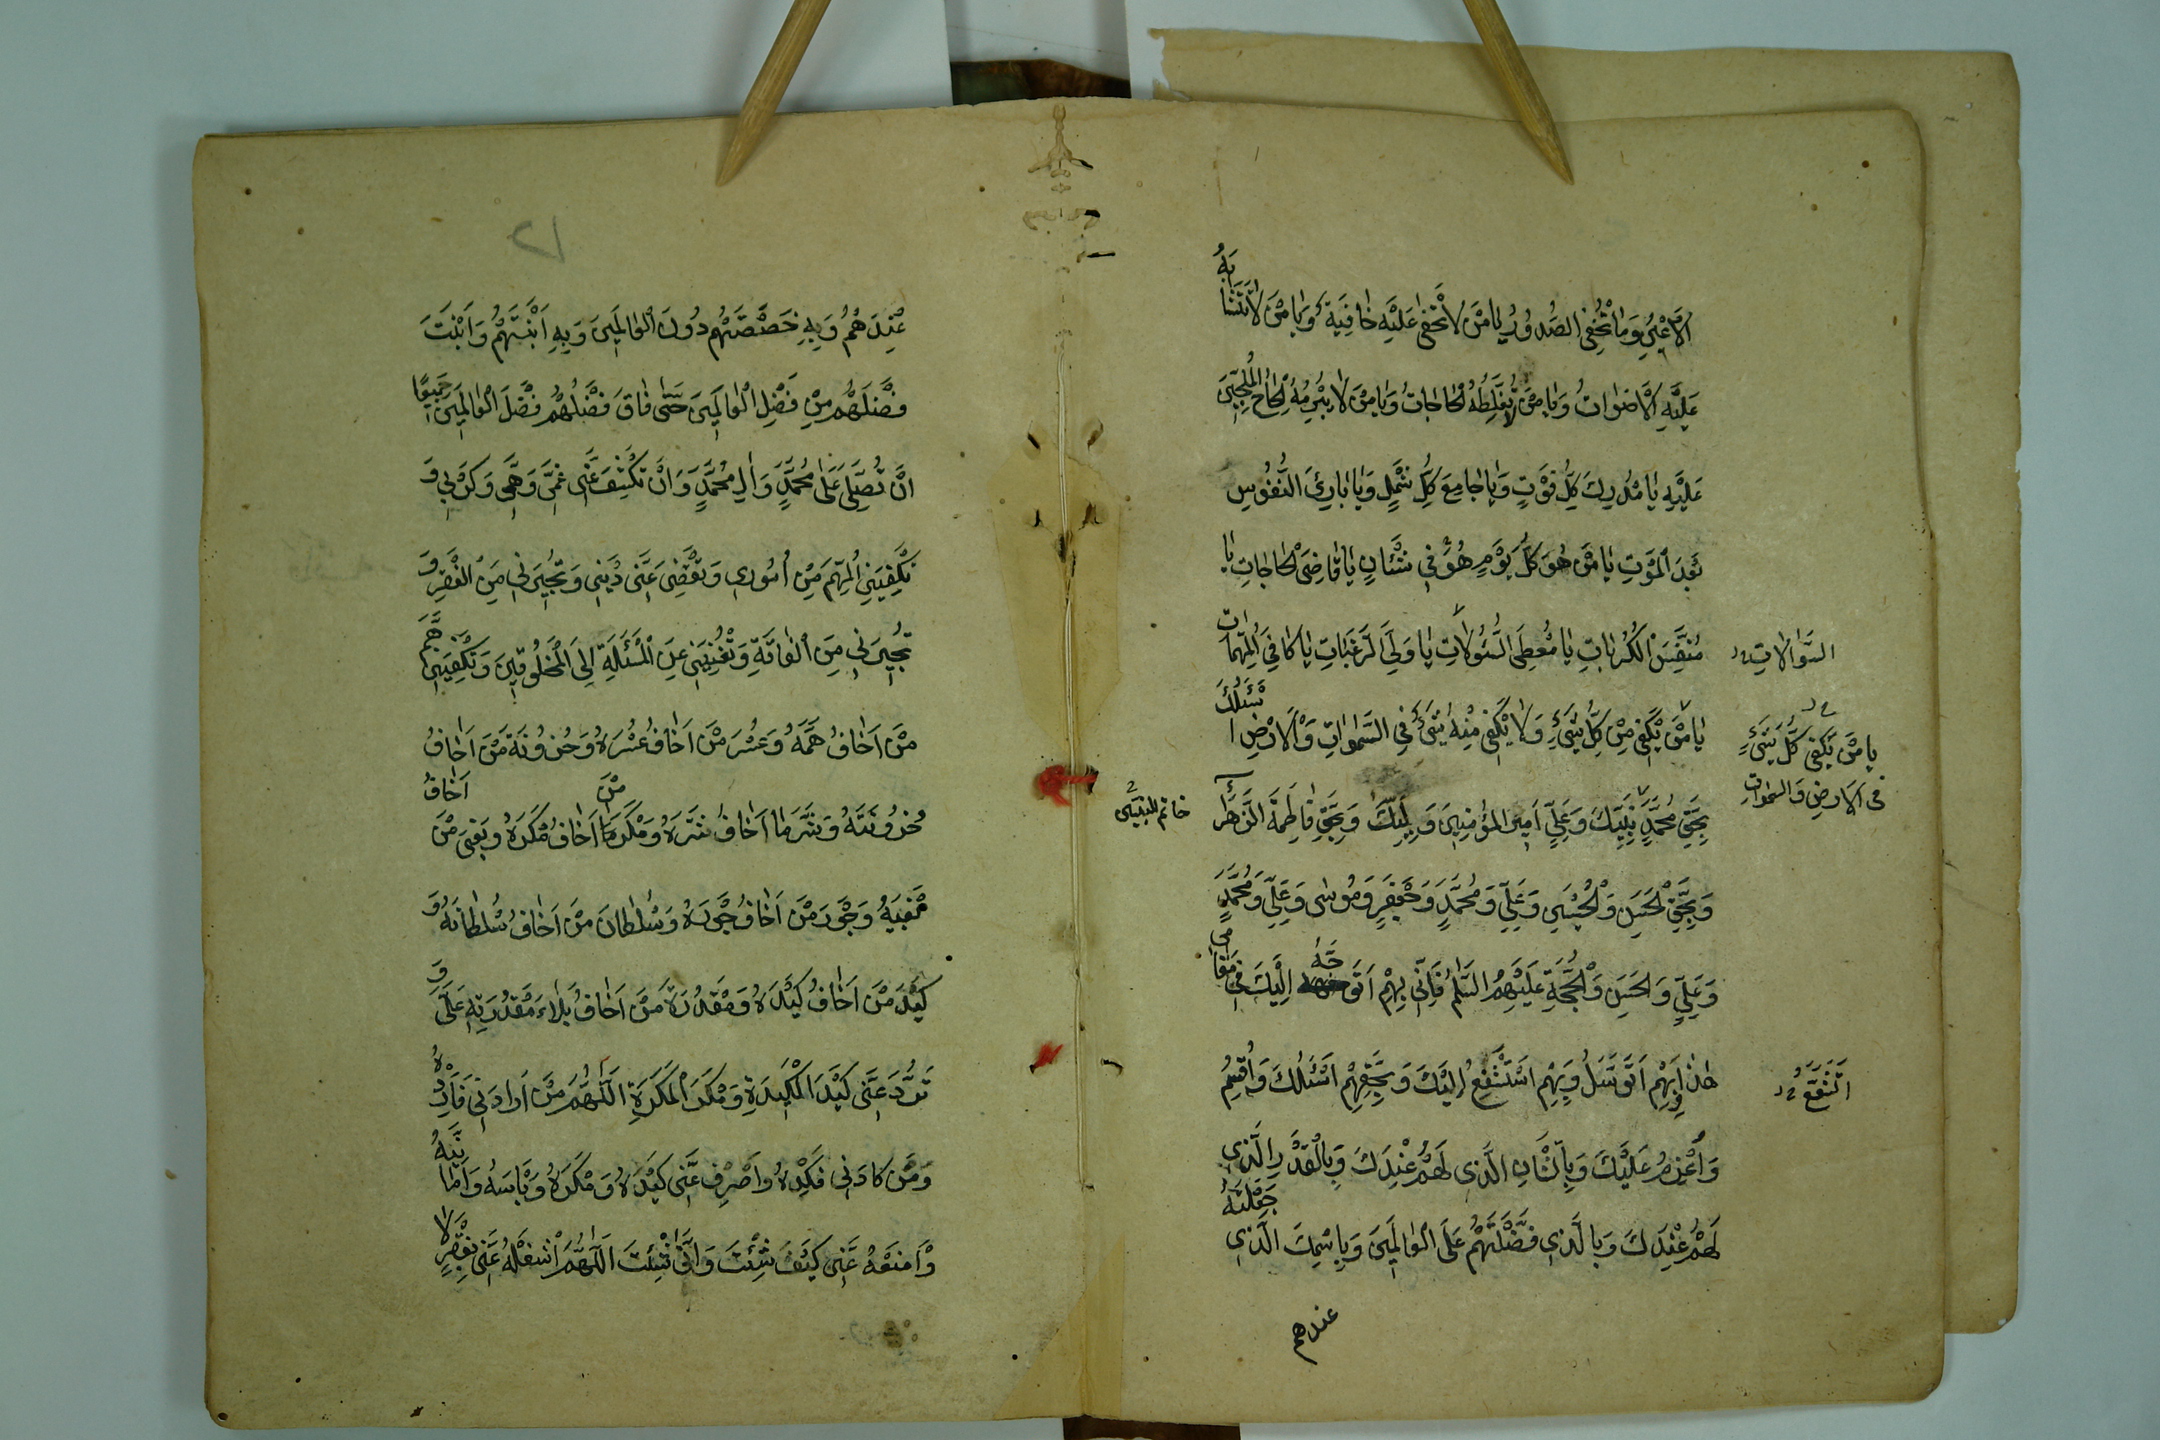 الْاَعْيُنِ وَمٰا تُخْفِی الصُّدُورُ یٰا مَنْ لٰا تَخْفٰی عَلَيْهِ خٰافِيَة وَ یٰا مَنْ لٰا تَشْتَبِهُ
عَلَيْهِ الْاَصْوٰاتُ وَ یٰا مَنْ لٰا تُغَلِّطُهُ الْحٰاجٰاتُ وَ یٰا مَنْ لٰا يُبْرِمُهُ اِلْحٰاحُ الْمُلِحِّينَ
عَلَيْهِ یٰا مُدْرِكَ كُلِّ فَوْتٍ وَ یٰا جٰامِعَ كُلِّ شَمْلٍ وَ یٰا بٰارِئَ النُّفُوسِ
بَعْدَ الْمَوْتِ یٰا مَنْ هُوَ كُلَّ يَوْمٍ هُوَ فِی شَأْنٍ یٰا قٰاضِیَ الْحٰاجٰاتِ یٰا
مُنَفِّسَ الْكُرُبٰاتِ یٰا مُعْطِیَ السُّئُولٰاتِ یٰا وَلِیَّ الرَّغَبٰاتِ یٰا كٰافِیَ الْمُهِمّٰاتِ
السُّؤٰالٰاتِ
یٰا مَنْ يَكْفِی مِنْ كُلِّ شَیْءٍ وَ لٰا يَكْفِی مِنْهُ شَیْءٌ فِی السَّمٰوٰاتِ وَالْاَرْضِ اَسْئَلُكَ
یا مَنْ يَكْفِی كُلَّ شَیْءٍ
فی الارض والسموات
بِحَقِّ مُحَمَّدٍ نَبِيِّكَ وَ عَلِیٍّ اَمِيرِ الْمُؤْمِنِينَ وَ وَلِيِّكَ وَ بِحَقِّ فٰاطِمَةَ الزَّهْرٰآءِ
خاتم النبیین
وَ بِحَقِّ الْحَسَنِ وَ الْحُسَيْنِ وَ عَلِیٍّ وَ مُحَمَّدٍ وَ جَعْفَرٍ وَ مُوسٰی وَ عَلِیٍّ وَ مُحَمَّدٍ
وَ عَلِیٍّ وَ الْحَسَنِ وَ الْحُجَّةِ عَلَيْهِمُ السَّلٰمُ فَاِنِّی بِهِمْ اَتَوَجَّهُ اِلَيْكَ فِی مَقٰامِی
هٰذٰا وَ بِهِمْ اَتَوَسَّلُ وَ بِهِمْ اَسْتَشْفِعُ اِلَيْكَ وَ بِحَقِّهِمْ اَسْئَلُكَ وَ اُقْسِمُ
وَ اَعْزِمُ عَلَيْكَ وَ بِالشَّانِ الَّذِی لَهُمْ عِنْدَكَ وَ بِالْقَدْرِ الَّذِی
لَهُمْ عِنْدَكَ وَ بِالَّذِی فَضَّلْتَهُمْ عَلَی الْعٰالَمِينَ وَ بِاسْمِكَ الَّذِی جَعَلْتَهُ
عندهم
١٢
عِنْدَهُمْ وَ بِهِ خَصَصْتَهُمْ دُونَ الْعٰالَمِينَ وَ بِهِ اَبَنْتَهُمْ وَ اَبَنْتَ
فَضْلَهُمْ مِنْ فَضْلِ الْعٰالَمِينَ حَتّٰی فٰاقَ فَضْلُهُمْ فَضْلَ الْعٰالَمِينَ جَمِيعًا
اَنْ تُصَلِّیَ عَلٰی مُحَمَّدٍ وَ اٰلِ مُحَمَّدٍ وَ اَنْ تَكْشِفَ عَنِّی غَمِّی وَ هَمِّی وَ كَرْبِی وَ
تَكْفِيَنِی الْمُهِمَّ مِنْ اُمُورِی وَ تَقْضِیَ عَنِّی دَيْنِی وَ تُجِيرَنِی مِنَ الْفَقْرِ وَ
تُجِيرَنِی مِنَ الْفٰاقَةِ وَ تُغْنِيَنِی عَنِ الْمَسْئَلَةِ اِلَی الْمَخْلُوقِينَ وَ تَكْفِيَنِی هَمَّ
مَنْ اَخٰافُ هَمَّهُ وَ عُسْرَ مَنْ اَخٰافُ عُسْرَهُ وَ حُزُونَةَ مَنْ اَخٰافُ
حُزُونَتَهُ وَ شَرَّ مٰا اَخٰافُ شَرَّهُ وَ مَكْرَ مَنْ اَخٰافُ مَكْرَهُ وَ بَغْیَ مَنْ اَخٰافُ
بَغْيَهُ وَ جَوْرَ مَنْ اَخٰافُ جَوْرَهُ وَ سُلْطٰانَ مَنْ اَخٰافُ سُلْطٰانَهُ وَ
كَيْدَ مَنْ اَخٰافُ كَيْدَهُ وَ مَقْدُرَةَ مَنْ اَخٰافُ بَلٰاءَ مَقْدُرَتِهِ عَلَیَّ وَ
تَرُدَّ عَنِّی كَيْدَ الْمَكِيدَةِ وَ مَكْرَ الْمَكَرَةِ اَللّٰهُمَّ مَنْ اَرٰادَنِی فَاَرِدْهُ
وَ مَنْ كٰادَنِی فَكِدْهُ وَ اصْرِفْ عَنِّی كَيْدَهُ وَ مَكْرَهُ وَ بَأْسَهُ وَ اَمٰانِيَّهُ
وَ امْنَعْهُ عَنِّی كَيْفَ شِئْتَ وَ اَنّٰی شِئْتَ اَللّٰهُمَّ اشْغَلْهُ عَنِّی بِفَقْرٍ لٰا